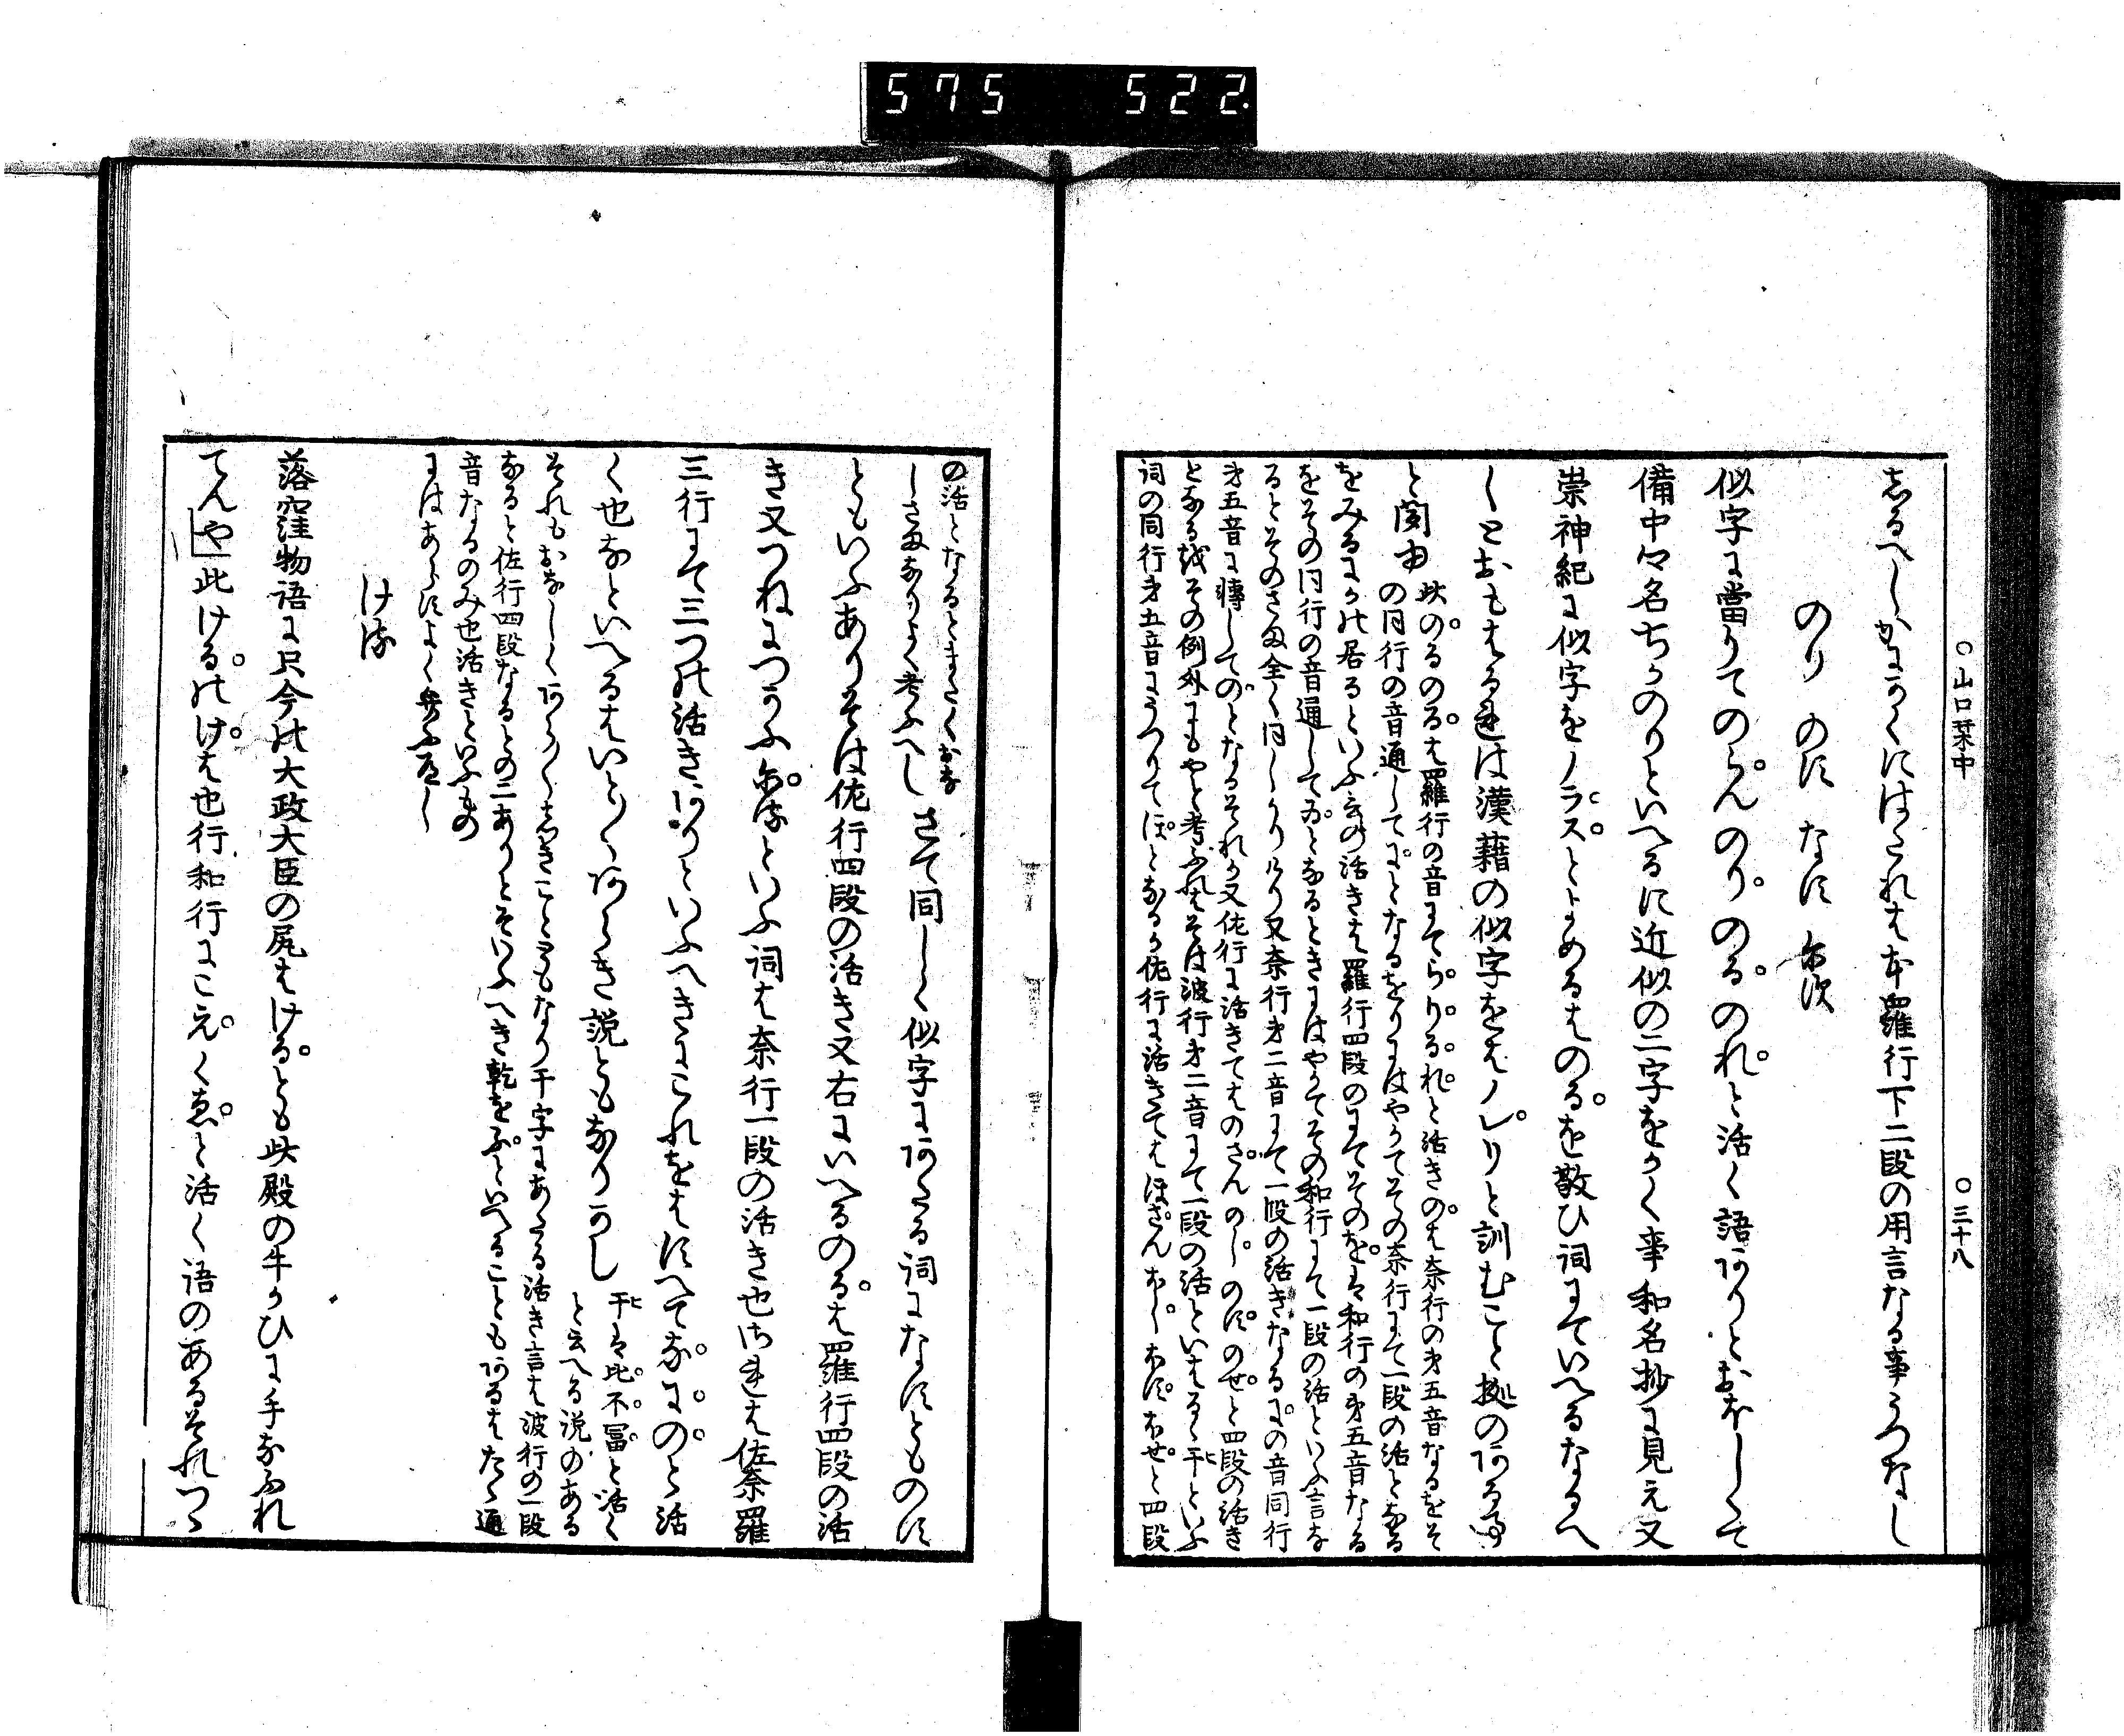 575 522.
○山口栞中 ○三十八
しるへしかまかくにはされは本羅行下二段の用言なる事うつなし
のり のす なす に須
似字に當りてのらんのりのるのれと活く語ありとおほしくて
備中々名ちかのりといへるに近似の二字をかく事和名抄に見え又
崇神紀に似字をノラスとよめるはのるを敬ひ詞にていへるなるへ
しとおもはるれは漢籍の似字をはノレリと訓むこと拠のある事
と聞ゆ
此のるのるは羅行の音にてらりるれと活きのは奈行の第五音なるをそ
の同行の音通してにとなるをりにはやかてその奈行にて一段の活となる
をみるにかの居るといふ言の活きは羅行四段のにてそのをは和行の第五音なる
をその同行の音通してゐとなるときにはやかてその和行にて一段の活といふ言な
るとそのさま全く同しかりけり又奈行第二音にて一段の活きなるにの音同行
第五音に轉してのとなるそれか又佐行に活きてはのさんのしのすのせと四段の活き
となる或その例外にもやと考ふれはそは波行第二音にて一段の活といはるゝ干といふ
詞の同行第五音にうつりてほとなるか佐行に活きてはほさんほしほすほせと四段
の活となるとまたくおな
しさまなりよく考ふへし
さて同しく似字にあたる詞になすとものす
ともいふありそは佐行四段の活き又右にいへるのるは羅行四段の活
き又つねにつかふにるといふ詞は奈行一段の活き也されは佐奈羅
三行にて三つの活きありといふへきにこれをはすへてなにのと活
く也なといへるはいとりくあらき説ともなりかし
干は比不冨と活く
と云へる説のある
それもおなしくあらくしきことゝもなり干字にあたる活き言は波行の一段
なると佐行四段なるとの二ありとそいふへき乾をふといへることもあるはたゝ通
音なるのみ也活きといふもの
にはあらすよく弁ふへし
ける
落窪物語に只今の大政大臣の尻はけるとも此殿の牛かひに手なふれ
てんや此けるのけは也行和行にこえくゑと活く語のあるそれつゝ